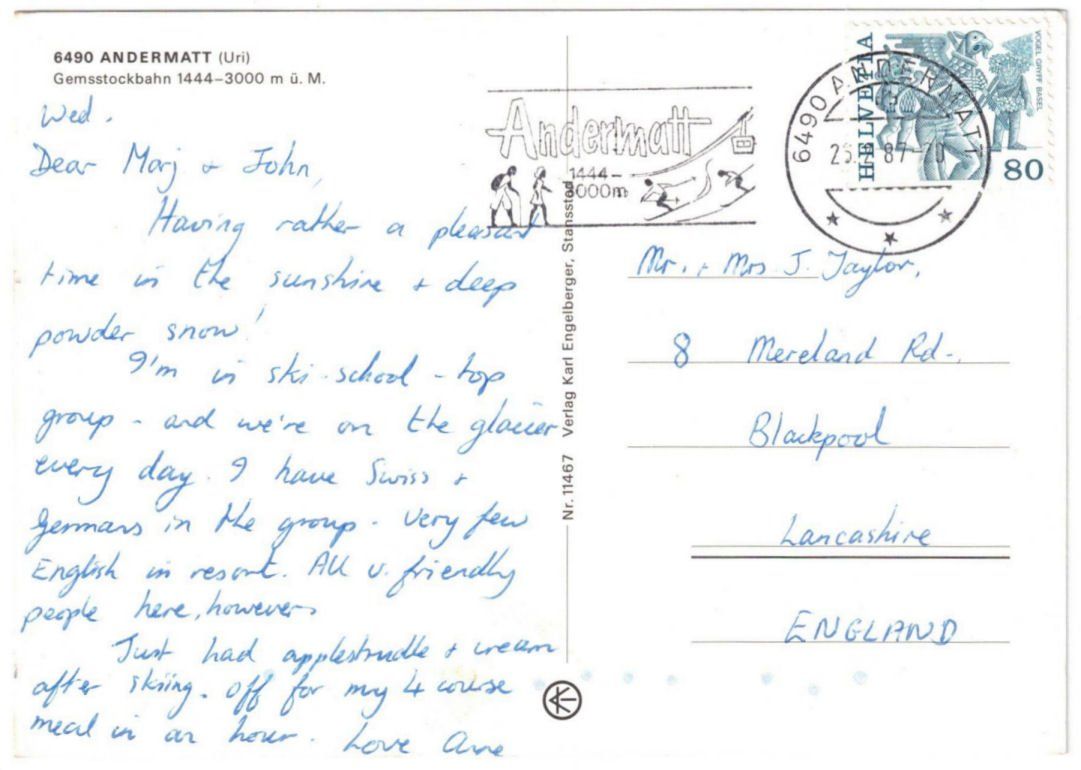 6490 ANDERMATT (Uri)
Gemsstockbahn 1444–3000 m ü. M.
Wed.
Dear Marj + John,
Having rather a pleasant
time in the sunshine + deep
powder snow!
I'm in ski-school - top
group - and we're on the glacier
every day. I have Swiss +
Germans in the group. Very few
English in resort. All v. friendly
people here, however.
Just had applestrudle + cream
after skiing. Off for my 4 course
meal in an hour. Love Anne
Nr. 11467 Verlag Karl Engelberger, Stansstad
Andermatt
1444-
3000m
6490 ANDERMATT
87-
HELVETIA
VOGEL GRYFF BASEL
80
Mr. + Mrs J. Taylor,
8 Mereland Rd.,
Blackpool
Lancashire
ENGLAND